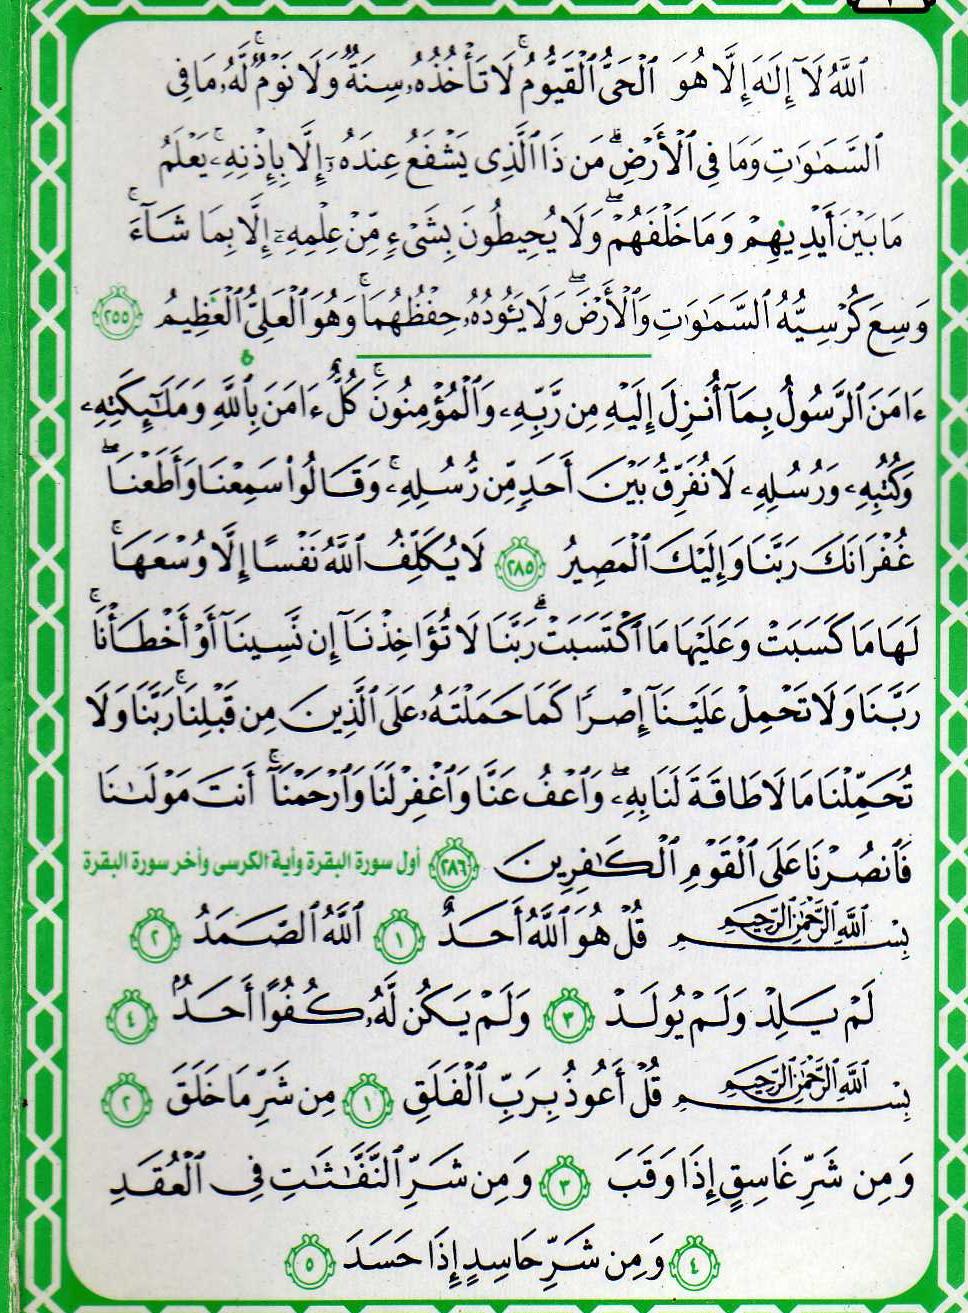 ٱللَّهُ لَآ إِلَٰهَ إِلَّا هُوَ ٱلْحَىُّ ٱلْقَيُّومُ ۚ لَا تَأْخُذُهُۥ سِنَةٌ وَلَا نَوْمٌ ۚ لَّهُۥ مَا فِى
ٱلسَّمَٰوَٰتِ وَمَا فِى ٱلْأَرْضِ ۗ مَن ذَا ٱلَّذِى يَشْفَعُ عِندَهُۥٓ إِلَّا بِإِذْنِهِۦ ۚ يَعْلَمُ
مَا بَيْنَ أَيْدِيهِمْ وَمَا خَلْفَهُمْ ۖ وَلَا يُحِيطُونَ بِشَىْءٍ مِّنْ عِلْمِهِۦٓ إِلَّا بِمَا شَآءَ ۚ
وَسِعَ كُرْسِيُّهُ ٱلسَّمَٰوَٰتِ وَٱلْأَرْضَ ۖ وَلَا يَـُٔودُهُۥ حِفْظُهُمَا ۚ وَهُوَ ٱلْعَلِىُّ ٱلْعَظِيمُ ٢٥٥
ءَامَنَ ٱلرَّسُولُ بِمَآ أُنزِلَ إِلَيْهِ مِن رَّبِّهِۦ وَٱلْمُؤْمِنُونَ ۚ كُلٌّ ءَامَنَ بِٱللَّهِ وَمَلَٰٓئِكَتِهِۦ
وَكُتُبِهِۦ وَرُسُلِهِۦ لَا نُفَرِّقُ بَيْنَ أَحَدٍ مِّن رُّسُلِهِۦ ۚ وَقَالُوا۟ سَمِعْنَا وَأَطَعْنَا ۖ
غُفْرَانَكَ رَبَّنَا وَإِلَيْكَ ٱلْمَصِيرُ ٢٨٥ لَا يُكَلِّفُ ٱللَّهُ نَفْسًا إِلَّا وُسْعَهَا ۚ
لَهَا مَا كَسَبَتْ وَعَلَيْهَا مَا ٱكْتَسَبَتْ ۗ رَبَّنَا لَا تُؤَاخِذْنَآ إِن نَّسِينَآ أَوْ أَخْطَأْنَا ۚ
رَبَّنَا وَلَا تَحْمِلْ عَلَيْنَآ إِصْرًا كَمَا حَمَلْتَهُۥ عَلَى ٱلَّذِينَ مِن قَبْلِنَا ۚ رَبَّنَا وَلَا
تُحَمِّلْنَا مَا لَا طَاقَةَ لَنَا بِهِۦ ۖ وَٱعْفُ عَنَّا وَٱغْفِرْ لَنَا وَٱرْحَمْنَآ ۚ أَنتَ مَوْلَىٰنَا
فَٱنصُرْنَا عَلَى ٱلْقَوْمِ ٱلْكَٰفِرِينَ ٢٨٦ أول سورة البقرة وأية الكرسى وآخر سورة البقرة
بِسْمِ ٱللَّهِ ٱلرَّحْمَٰنِ ٱلرَّحِيمِ قُلْ هُوَ ٱللَّهُ أَحَدٌ ١ ٱللَّهُ ٱلصَّمَدُ ٢
لَمْ يَلِدْ وَلَمْ يُولَدْ ٣ وَلَمْ يَكُن لَّهُۥ كُفُوًا أَحَدٌۢ ٤
بِسْمِ ٱللَّهِ ٱلرَّحْمَٰنِ ٱلرَّحِيمِ قُلْ أَعُوذُ بِرَبِّ ٱلْفَلَقِ ١ مِن شَرِّ مَا خَلَقَ ٢
وَمِن شَرِّ غَاسِقٍ إِذَا وَقَبَ ٣ وَمِن شَرِّ ٱلنَّفَّٰثَٰتِ فِى ٱلْعُقَدِ
٤ وَمِن شَرِّ حَاسِدٍ إِذَا حَسَدَ ٥